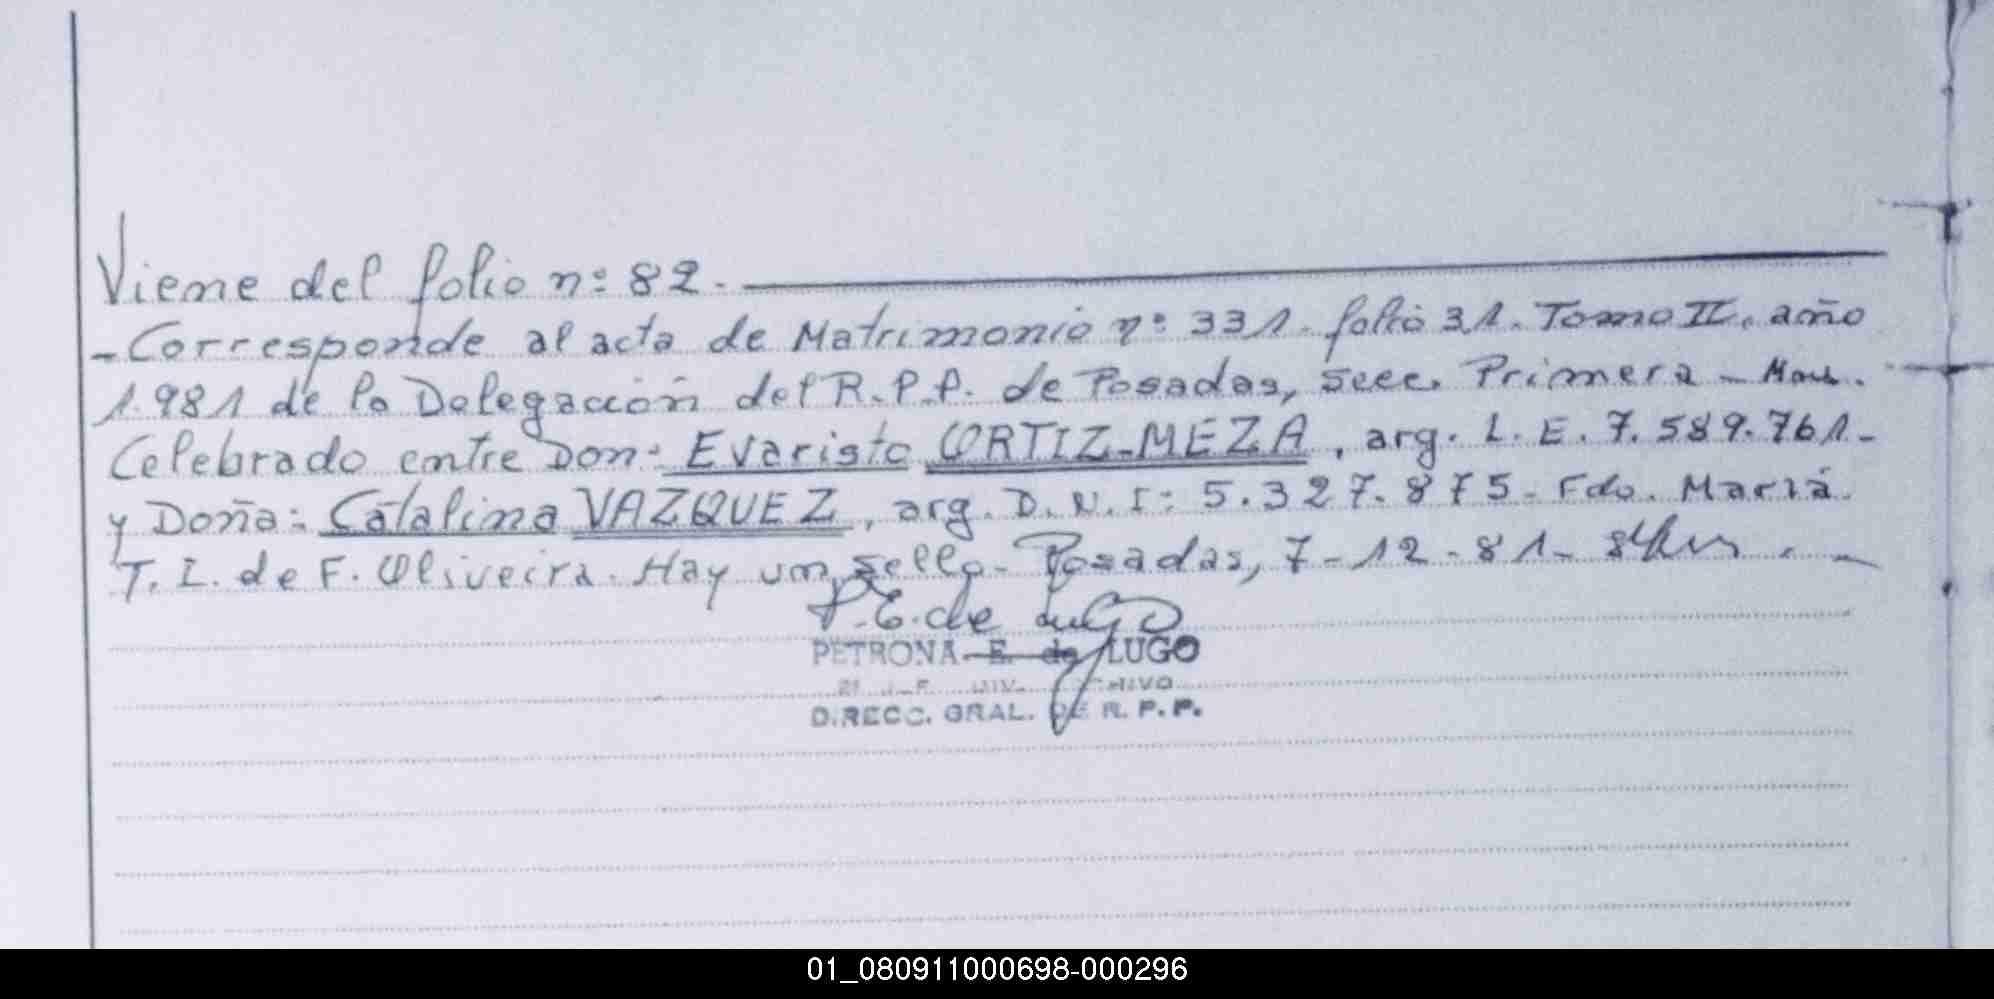 Viene del folio nº 82.
- Corresponde al acta de Matrimonio nº 331. folio 31. Tomo II. año
1.981 de la Delegación del R.P.P. de Posadas, secc. Primera -
Celebrado entre Don: Evaristo ORTIZ-MEZA, arg. L.E. 7.589.761-
y Doña: Catalina VAZQUEZ, arg. D.N.I: 5.327.875- Fdo. María
T. I. de F. Oliveira. Hay un sello- Posadas, 7-12-81-
P.E. de Lugo
PETRONA E. de LUGO
DIRECC. GRAL. DE R. P. P.
01_080911000698-000296